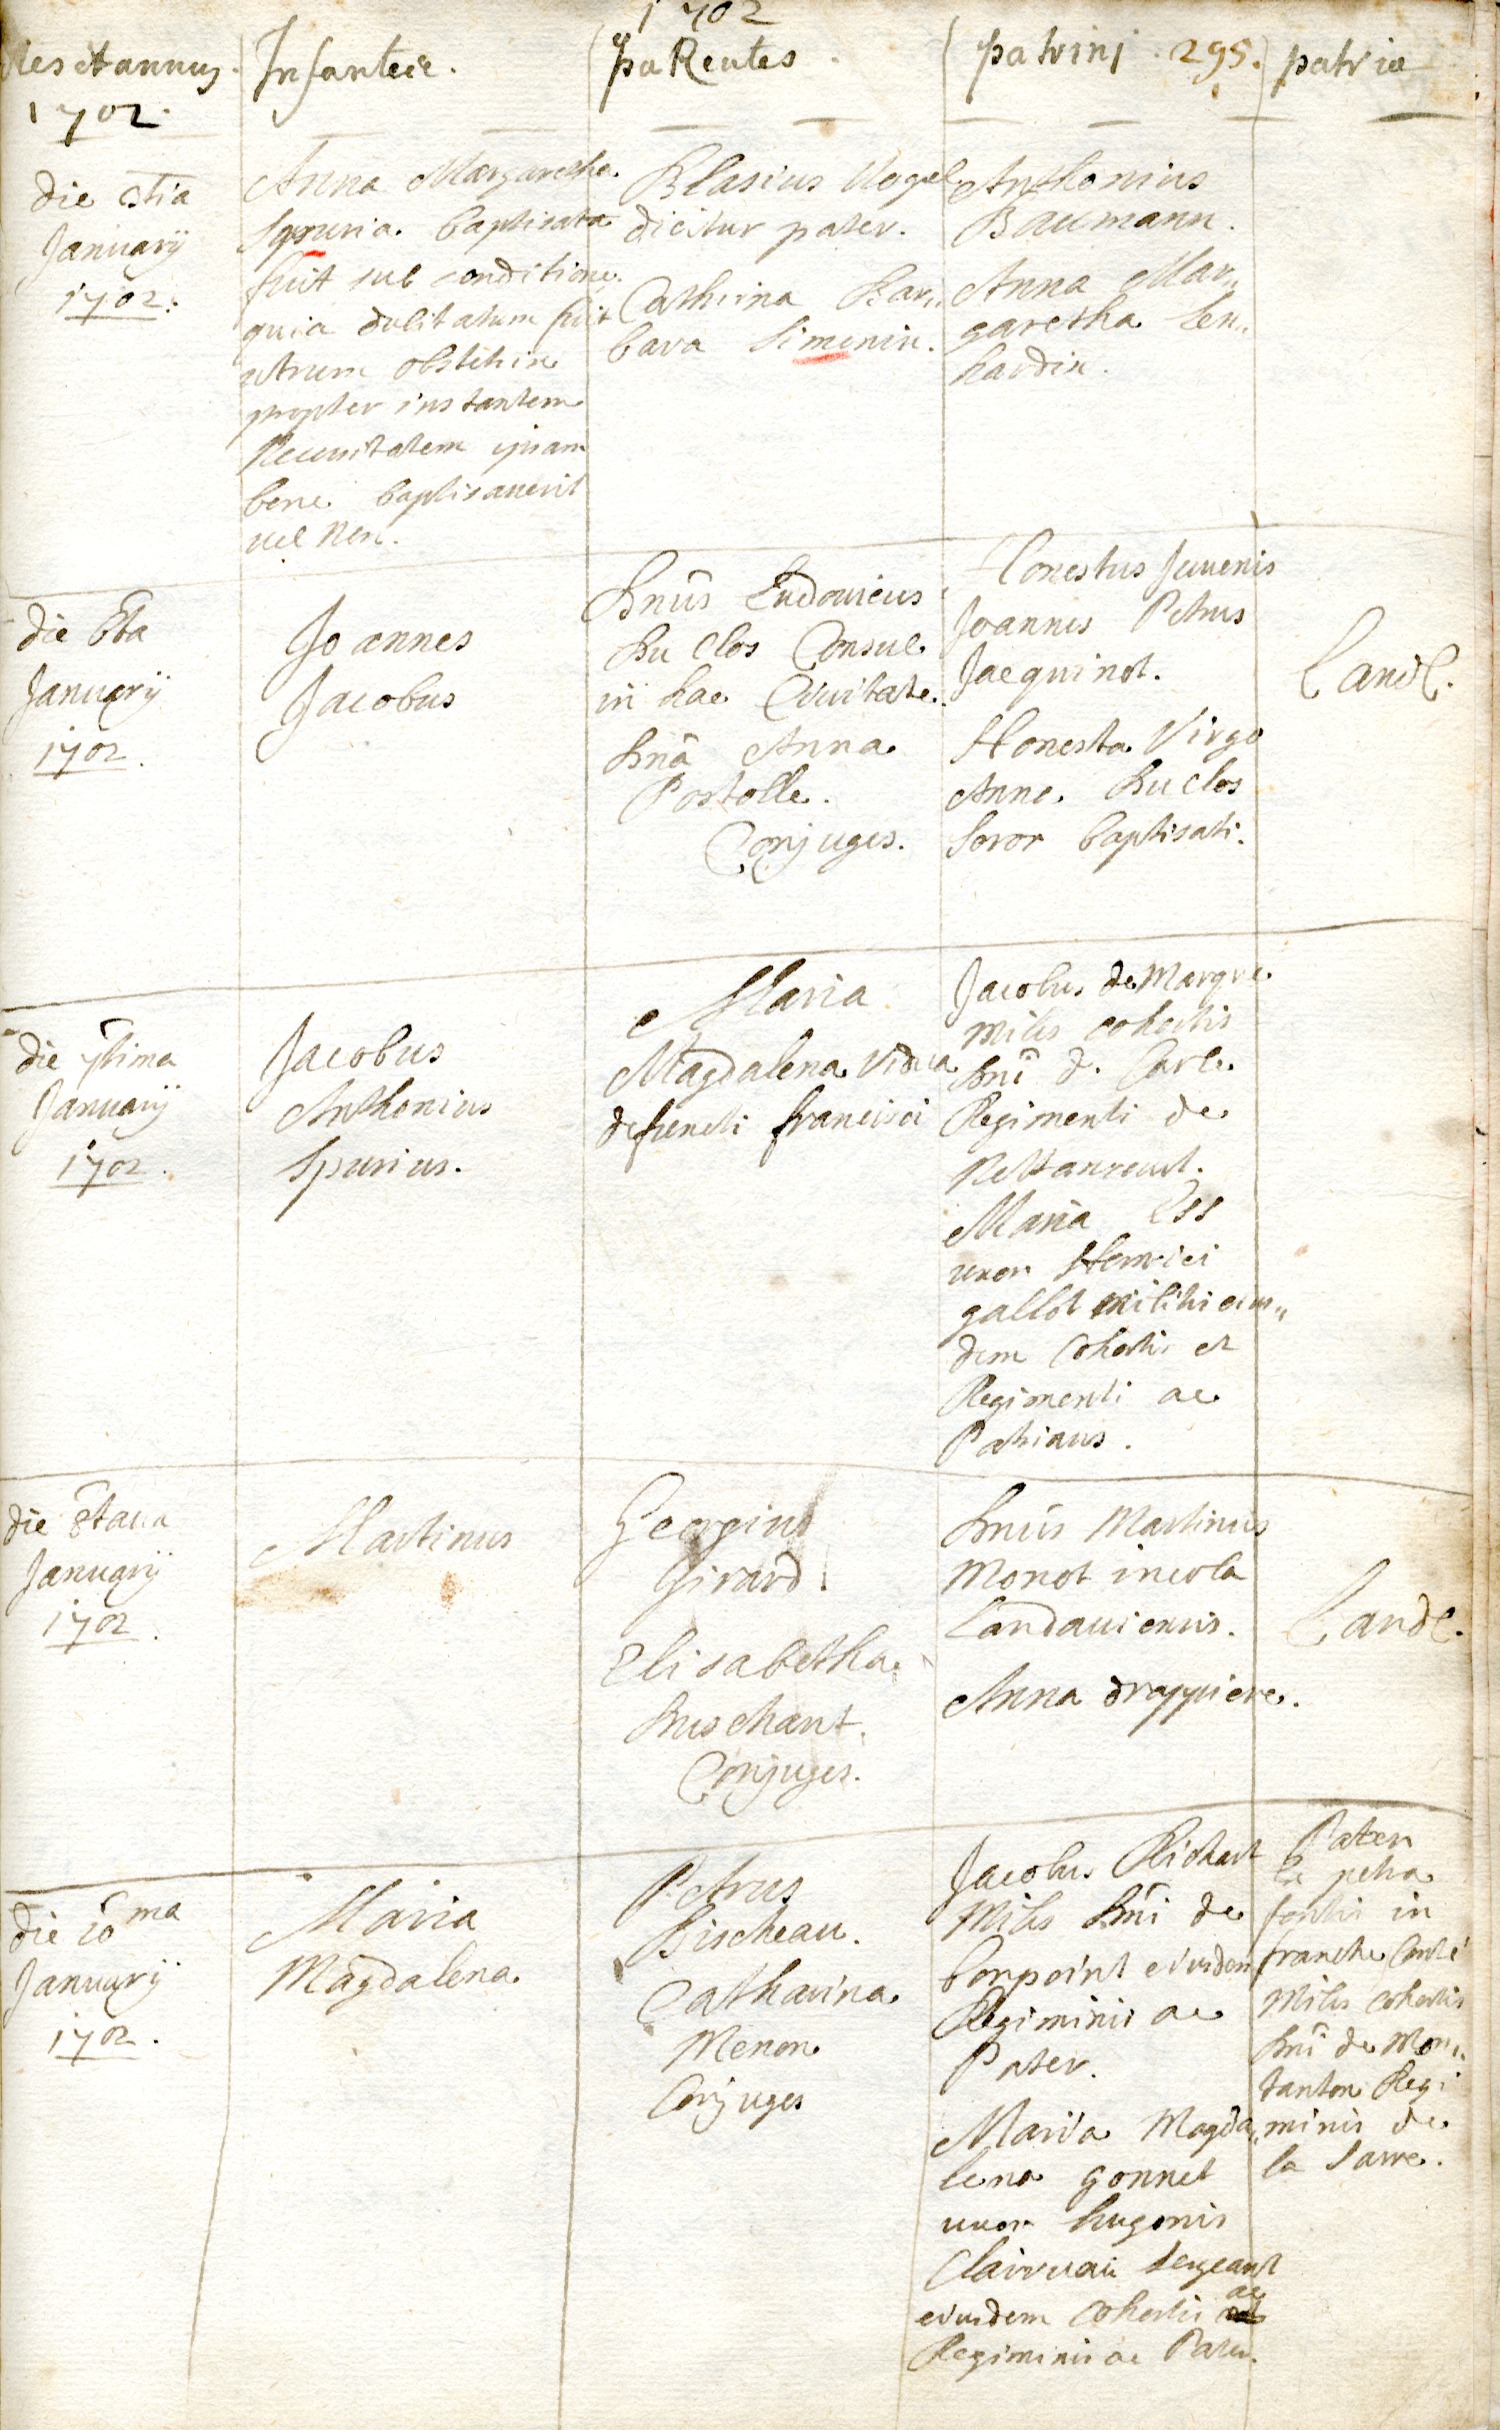 1702
dies et annus. Infantes. paRentes. patrini. 295. patria
1702.
die 5tia
Januarÿ
1702.
Anna Margaretha
Spuria. baptisata
fuit sub conditione.
quia dubitatum fuit
utrum obstetrix
propter instantem
Necessitatem ipsam
bene baptisauerit
uel Non.
Blasius Vogel
dicitur pater.
Catharina Bar„
bara Simonin.
Anthonius
Baumann.
Anna Mar„
garetha Len„
hardin.
die 6ta
Januarÿ
1702.
Joannes
Jacobus
Dnūs Ludouicus
Du Clos Consul
in hac Ciuitate.
Dnā Anna
Postolle.
Conjuges.
Honestus Juuenis
Joannes Petrus
Jacquinot.
Honesta Virgo
Anne Du clos
Soror baptisati.
Land.
die 7tima
Januarÿ
1702.
Jacobus
Anthonius
Spurius.
Maria
Magdalena Vidua
defuncti francisci
Jacobus de Margre
miles cohortis
Dni d. Carle
Regimenti de
Nettancourt.
Maria Ess
uxor Henrici
gallot militis eius„
dem Cohortis et
Regimenti ac
Patrinus.
die 8taua
Januarÿ
1702.
Martinus
Georgius
Girard.
Elisabetha
Duschant.
Conjuges.
Dnūs Martinus
Monot incola
Landauiensis.
Anna drappiere.
Land.
die 10ma
Januarÿ
1702.
Maria
Magdalena.
Petrus
Bischeau.
Catharina
Menon
Conjuges
Jacobus Richart
Miles Dni de
bonpoint eiusdem
Regiminis ac
Pater.
Maria Magda„
lena gonnet
uxor hugonis
Clairuaux sergeant
eiusdem Cohortis ac
Regiminis ac Pater.
Pater
ex petra
fontis in
franche Conté
Miles cohortis
Dni de Mon„
tanton Regi
minis de
la Sarre.